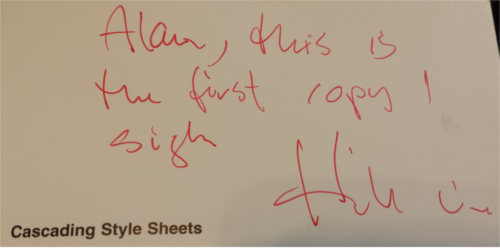 Alan, this is
the first copy I
sign
Cascading Style Sheets